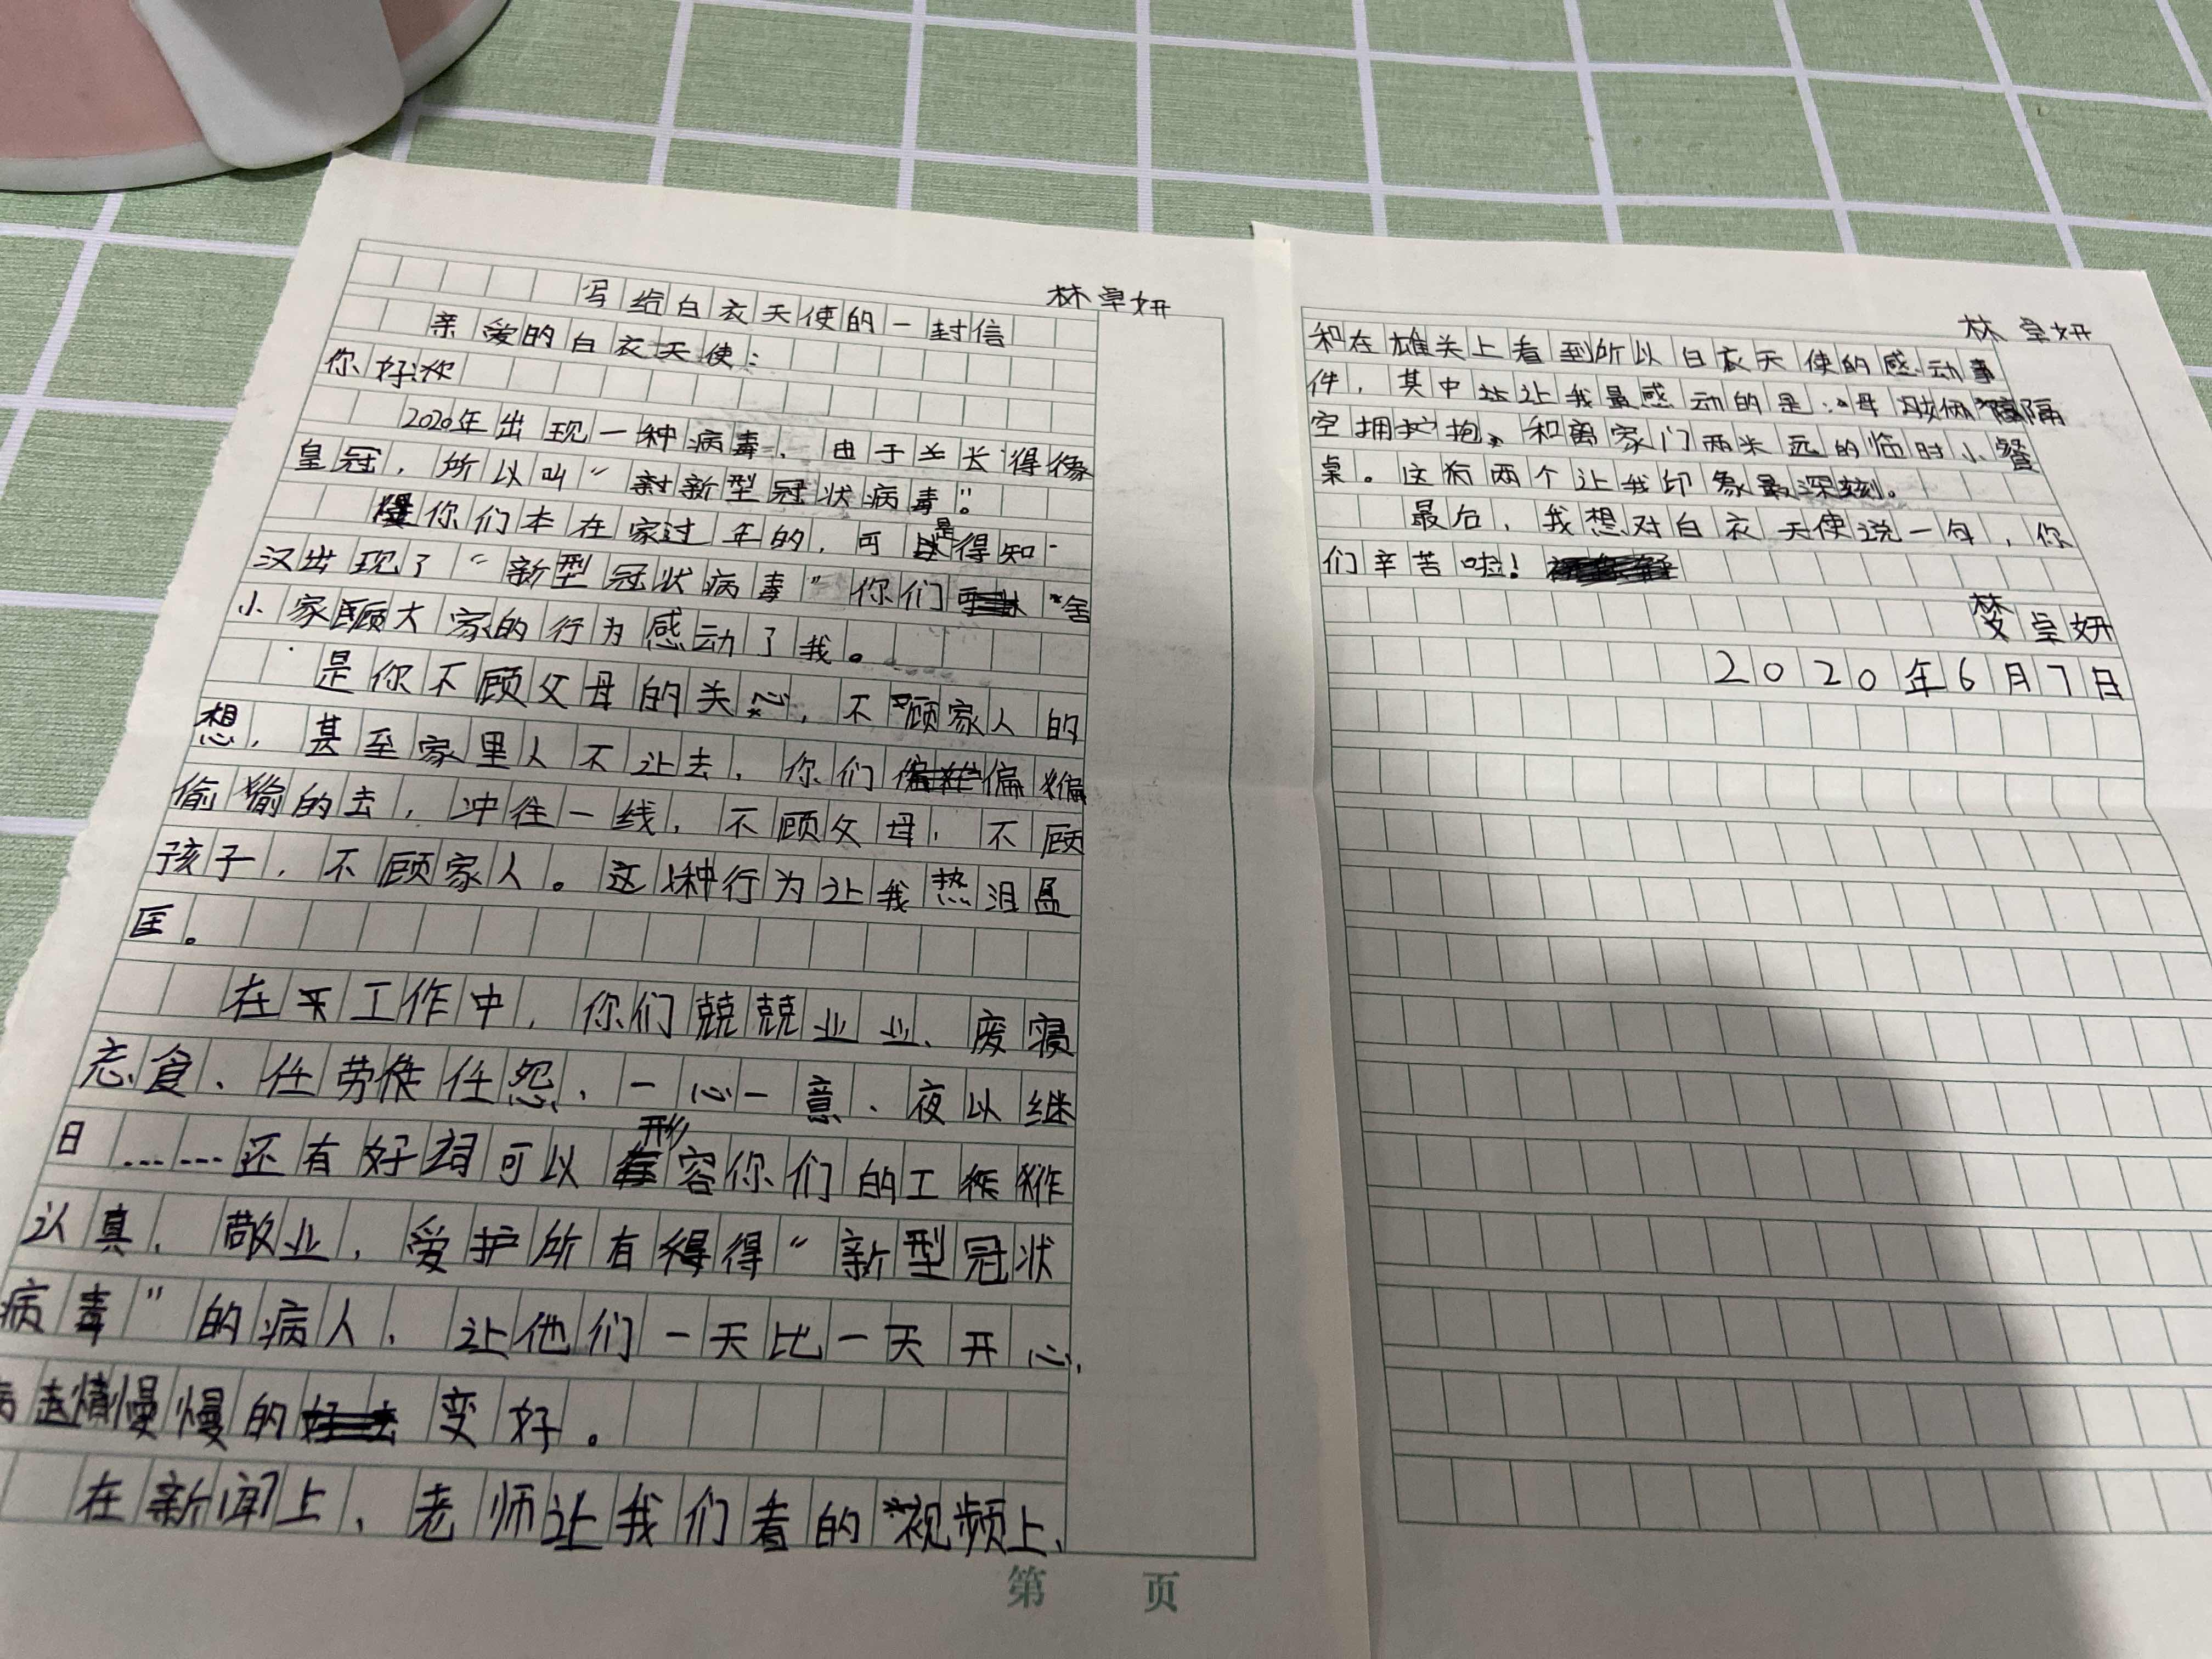 林卓妍
写给白衣天使的一封信
亲爱的白衣天使:
你好
2020年出现一种病毒,由于长得像
皇冠,所以叫“新型冠状病毒”。
你们本在家过年的,可是得知
汉出现了“新型冠状病毒”你们“舍
小家顾大家的行为感动了我。
是你不顾父母的关心,不顾家人的
想,甚至家里人不让去,你们偏偏
偷偷的去,冲往一线,不顾父母,不顾
孩子,不顾家人。这种行为让我热泪盈
匡。
在工作中,你们兢兢业业、废寝
忘食、任劳任怨、一心一意、夜以继
日……还有好词可以形容你们的工作
认真、敬业,爱护所有得“新型冠状
病毒”的病人,让他们一天比一天开心,
病情慢慢的变好。
在新闻上、老师让我们看的视频上、
第 页
林卓妍
和在雄关上看到所以白衣天使的感动事
件,其中让我最感动的是:母孩俩隔
空拥抱,和离家门两米远的临时小餐
桌。这两个让我印象最深刻。
最后,我想对白衣天使说一句,你
们辛苦啦!
林卓妍
2020年6月7日